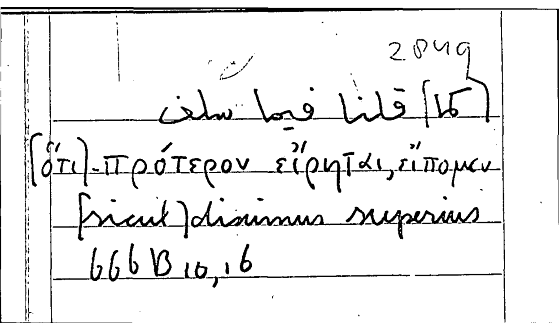 2849
(كما) قلنا فيما سلف
(ὅτι) πρότερον εἴρηται, εἴπομεν
(sicut) diximus superius
666 B 10, 16